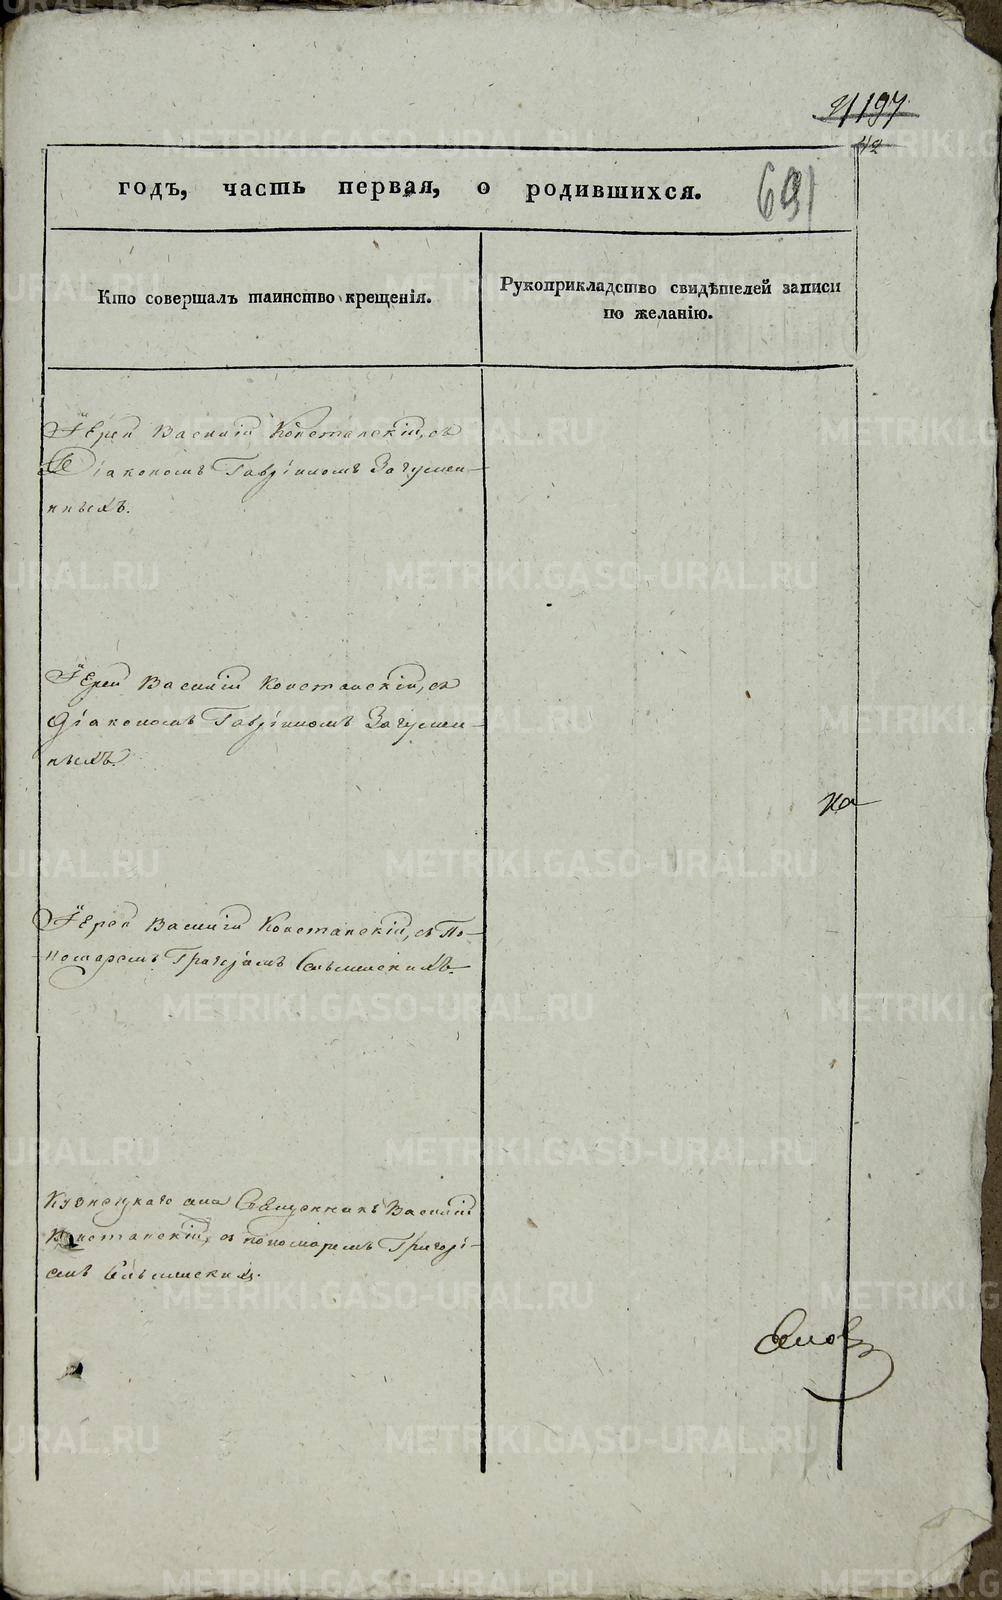 197
42
годъ, часть первая, о родившихся.
691
Кто совершалъ таинство крещенія.
Рукоприкладство свидѣтелей записи
по желанію.
Іерей Василій Констанскій, съ
Діакономъ Гавріиломъ Загумен-
ныхъ.
Іерей Василій Констанскій, съ
Діакономъ Гавріиломъ Загумен-
ныхъ.
на
Іерей Василій Констанскій, съ По-
номаремъ Григорьемъ
Кузнецкаго села Священникъ Василій
Констанскій, съ пономаремъ Григорі-
емъ
METRIKI.GASO-URAL.RU